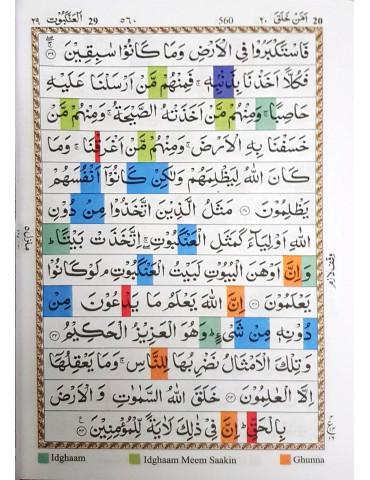 ٢٩ اَلْعَنْكَبُوْت 29 ٥٦٠ 560 اَمَّنْ خَلَقَ ٢٠ 20
فَاسْتَكْبَرُوْا فِى الْاَرْضِ وَمَا كَانُوْا سٰبِقِيْنَ ۝٣٩
فَكُلًّا اَخَذْنَا بِذَنْۢبِهٖ ۚ فَمِنْهُمْ مَّنْ اَرْسَلْنَا عَلَيْهِ
حَاصِبًا ۚ وَمِنْهُمْ مَّنْ اَخَذَتْهُ الصَّيْحَةُ ۚ وَمِنْهُمْ مَّنْ
خَسَفْنَا بِهِ الْاَرْضَ ۚ وَمِنْهُمْ مَّنْ اَغْرَقْنَا ۚ وَمَا
كَانَ اللّٰهُ لِيَظْلِمَهُمْ وَلٰكِنْ كَانُوْۤا اَنْفُسَهُمْ
يَظْلِمُوْنَ ۝٤٠ مَثَلُ الَّذِيْنَ اتَّخَذُوْا مِنْ دُوْنِ
اللّٰهِ اَوْلِيَآءَ كَمَثَلِ الْعَنْكَبُوْتِ ۚ اِتَّخَذَتْ بَيْتًا ؕ
وَاِنَّ اَوْهَنَ الْبُيُوْتِ لَبَيْتُ الْعَنْكَبُوْتِ ۘ لَوْ كَانُوْا
يَعْلَمُوْنَ ۝٤١ اِنَّ اللّٰهَ يَعْلَمُ مَا يَدْعُوْنَ مِنْ
دُوْنِهٖ مِنْ شَىْءٍ ؕ وَهُوَ الْعَزِيْزُ الْحَكِيْمُ ۝٤٢
وَتِلْكَ الْاَمْثَالُ نَضْرِبُهَا لِلنَّاسِ ۚ وَمَا يَعْقِلُهَاۤ
اِلَّا الْعٰلِمُوْنَ ۝٤٣ خَلَقَ اللّٰهُ السَّمٰوٰتِ وَالْاَرْضَ
بِالْحَقِّ ؕ اِنَّ فِىْ ذٰلِكَ لَاٰيَةً لِّلْمُؤْمِنِيْنَ ۝٤٤
منزل ٥
وقف لازم
Idghaam Idghaam Meem Saakin Ghunna